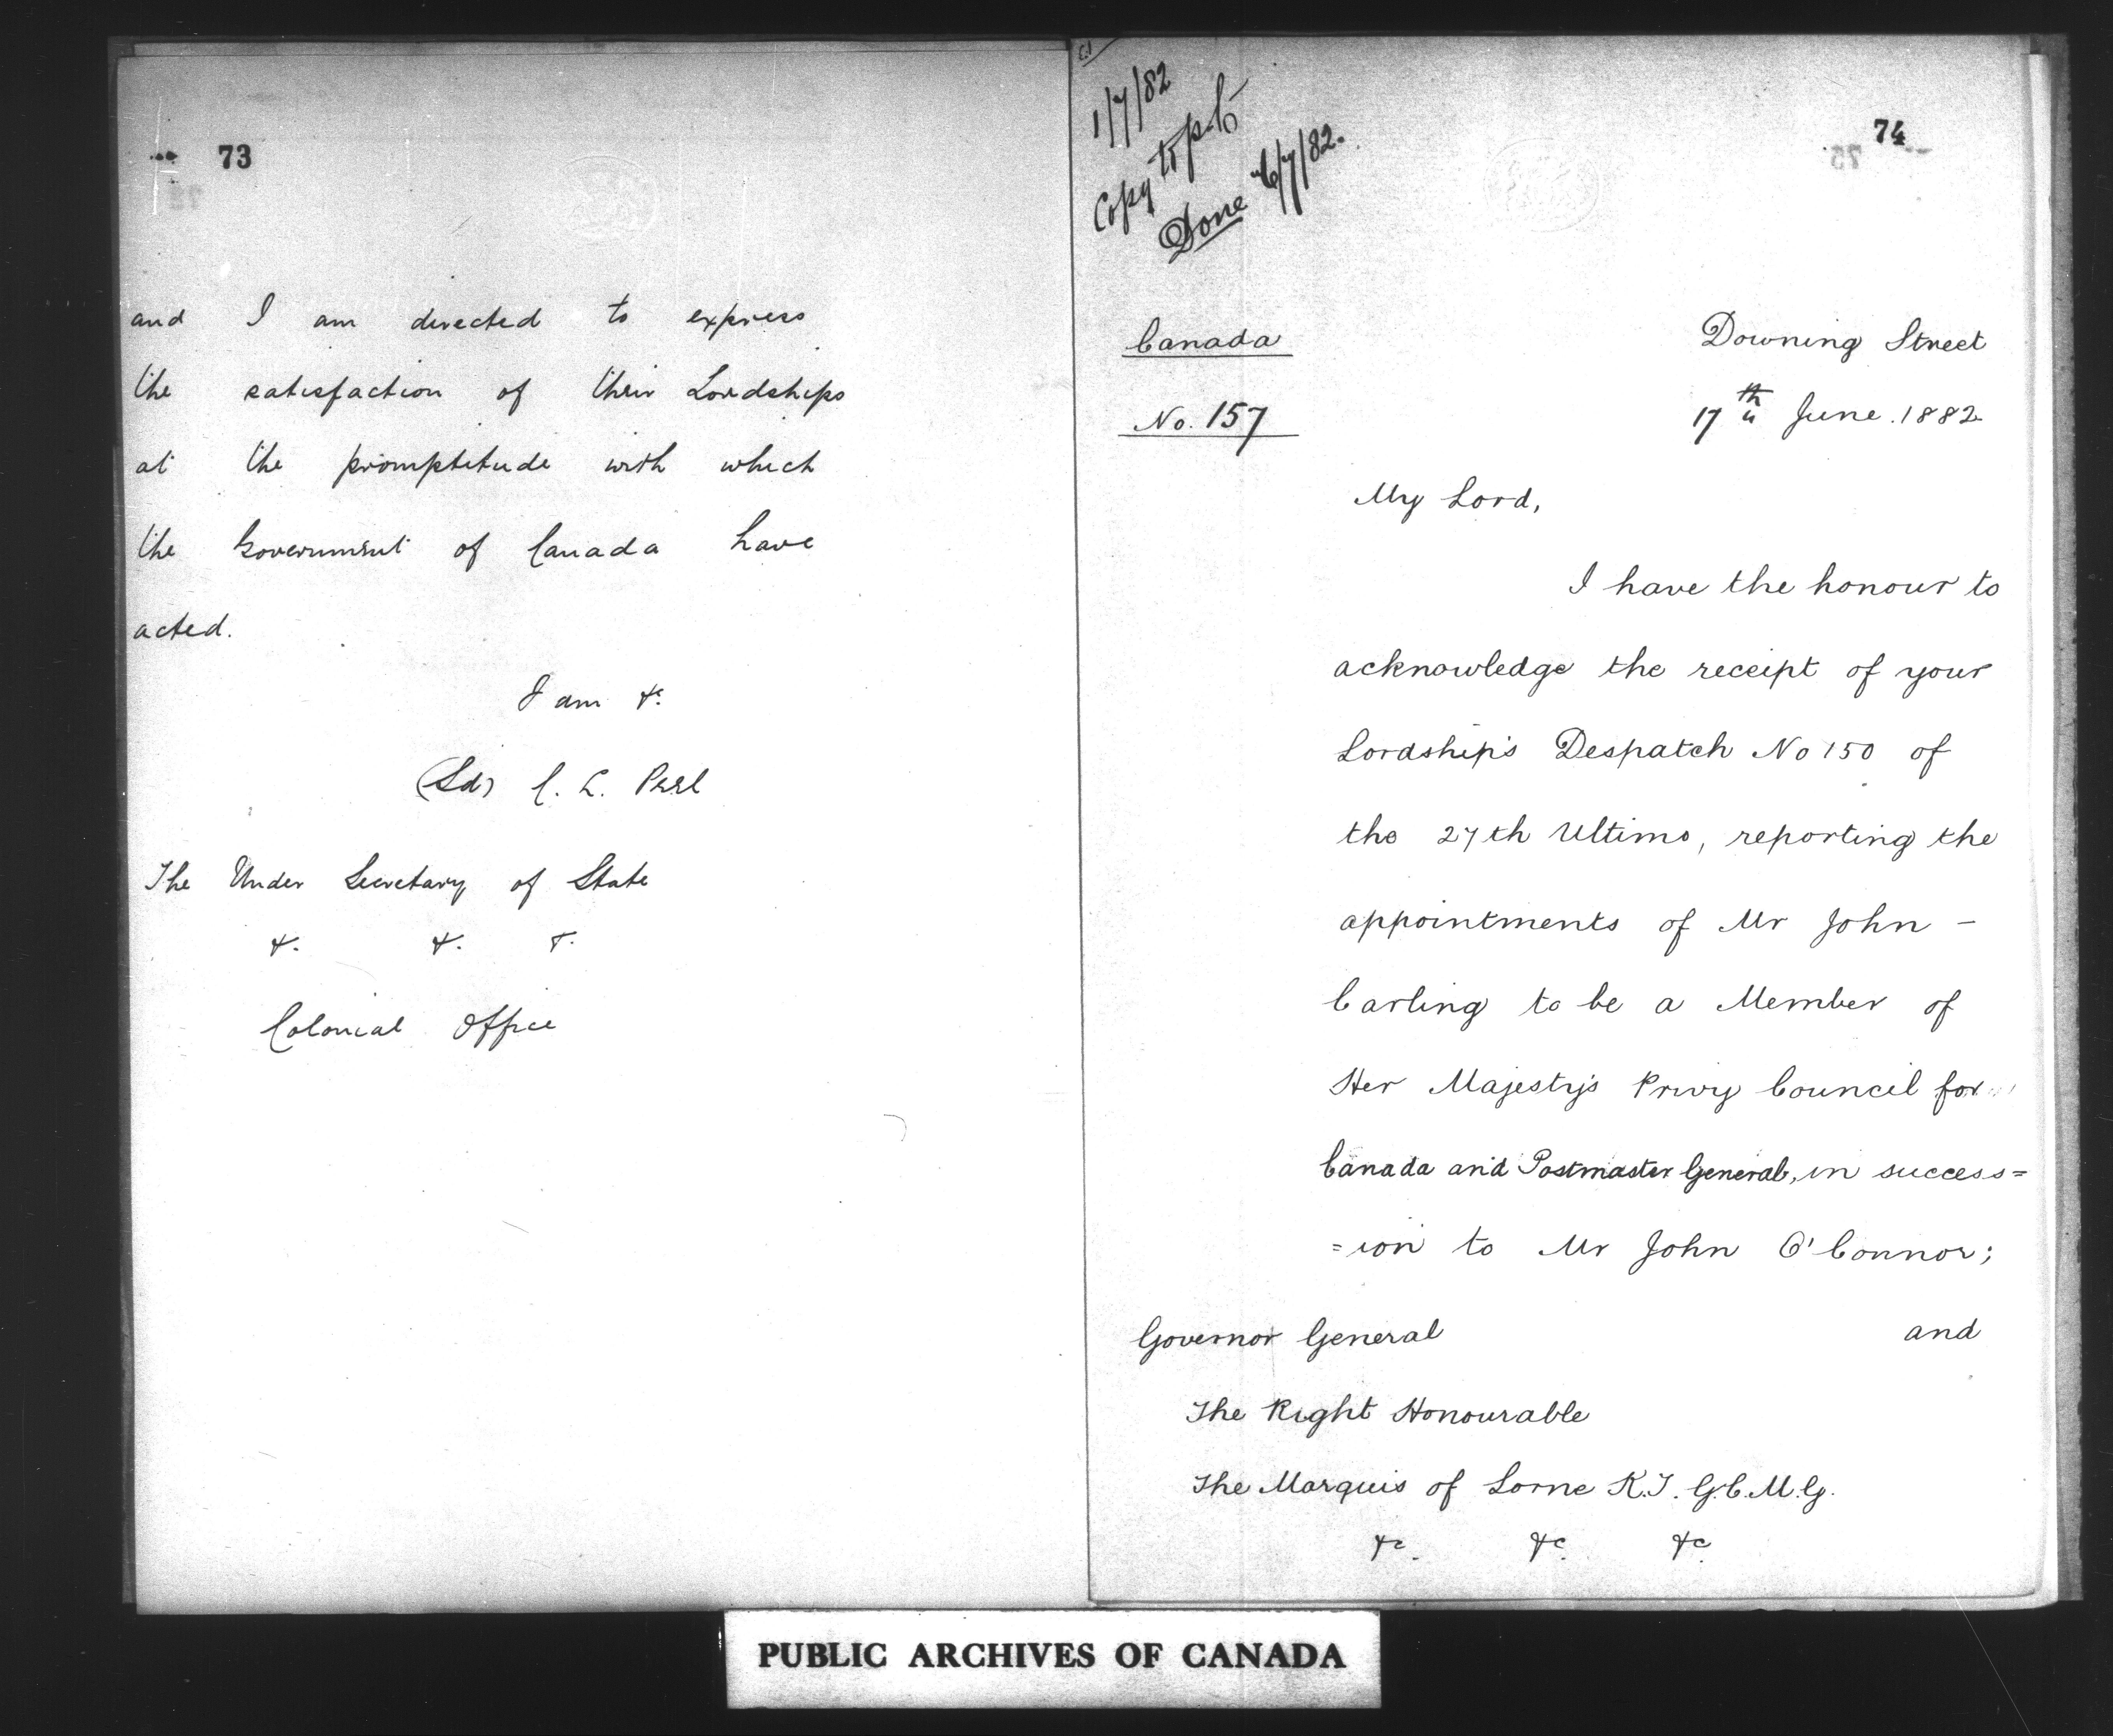 73
and I am directed to express
the satisfaction of their Lordships
at the promptitude with which
the Government of Canada have
acted.
I am &c
(Sd) C. L. Peel
The Under Secretary of State
&. &. &.
Colonial Office
74
1/7/82
Copy to p.C
Done 6/7/82.
Canada
No. 157
Downing Street
17th June. 1882
My Lord,
I have the honour to
acknowledge the receipt of your
Lordship's Despatch No 150 of
the 27th Ultimo, reporting the
appointments of Mr John -
Carling to be a Member of
Her Majesty's Privy Council for
Canada and Postmaster General, in success=
=ion to Mr John O'Connor;
and
Governor General
The Right Honourable
The Marquis of Lorne K.T. G.C.M.G.
&c. &c. &c.
PUBLIC ARCHIVES OF CANADA